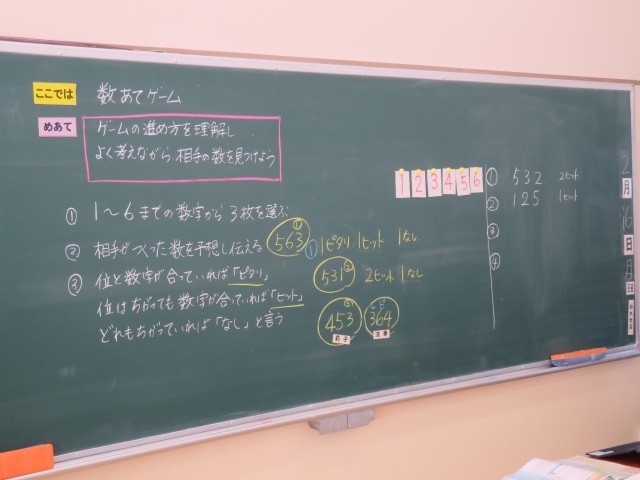 ここでは 数あてゲーム
めあて
ゲームの進め方を理解し
よく考えながら相手の数を見つけよう
① 1〜6までの数字から3枚を選ぶ
② 相手がつくった数を予想し伝える
③ 位と数字が合っていれば「ピタリ」
位はちがっても数字が合っていれば「ヒット」
どれもちがっていれば「なし」と言う
563 ①
① 1ピタリ 1ヒット 1なし
531 ②
2ヒット 1なし
453
364
1 2 3 4 5 6
① 532 2ヒット
② 125 1ヒット
③
④
2
月
16
日
月